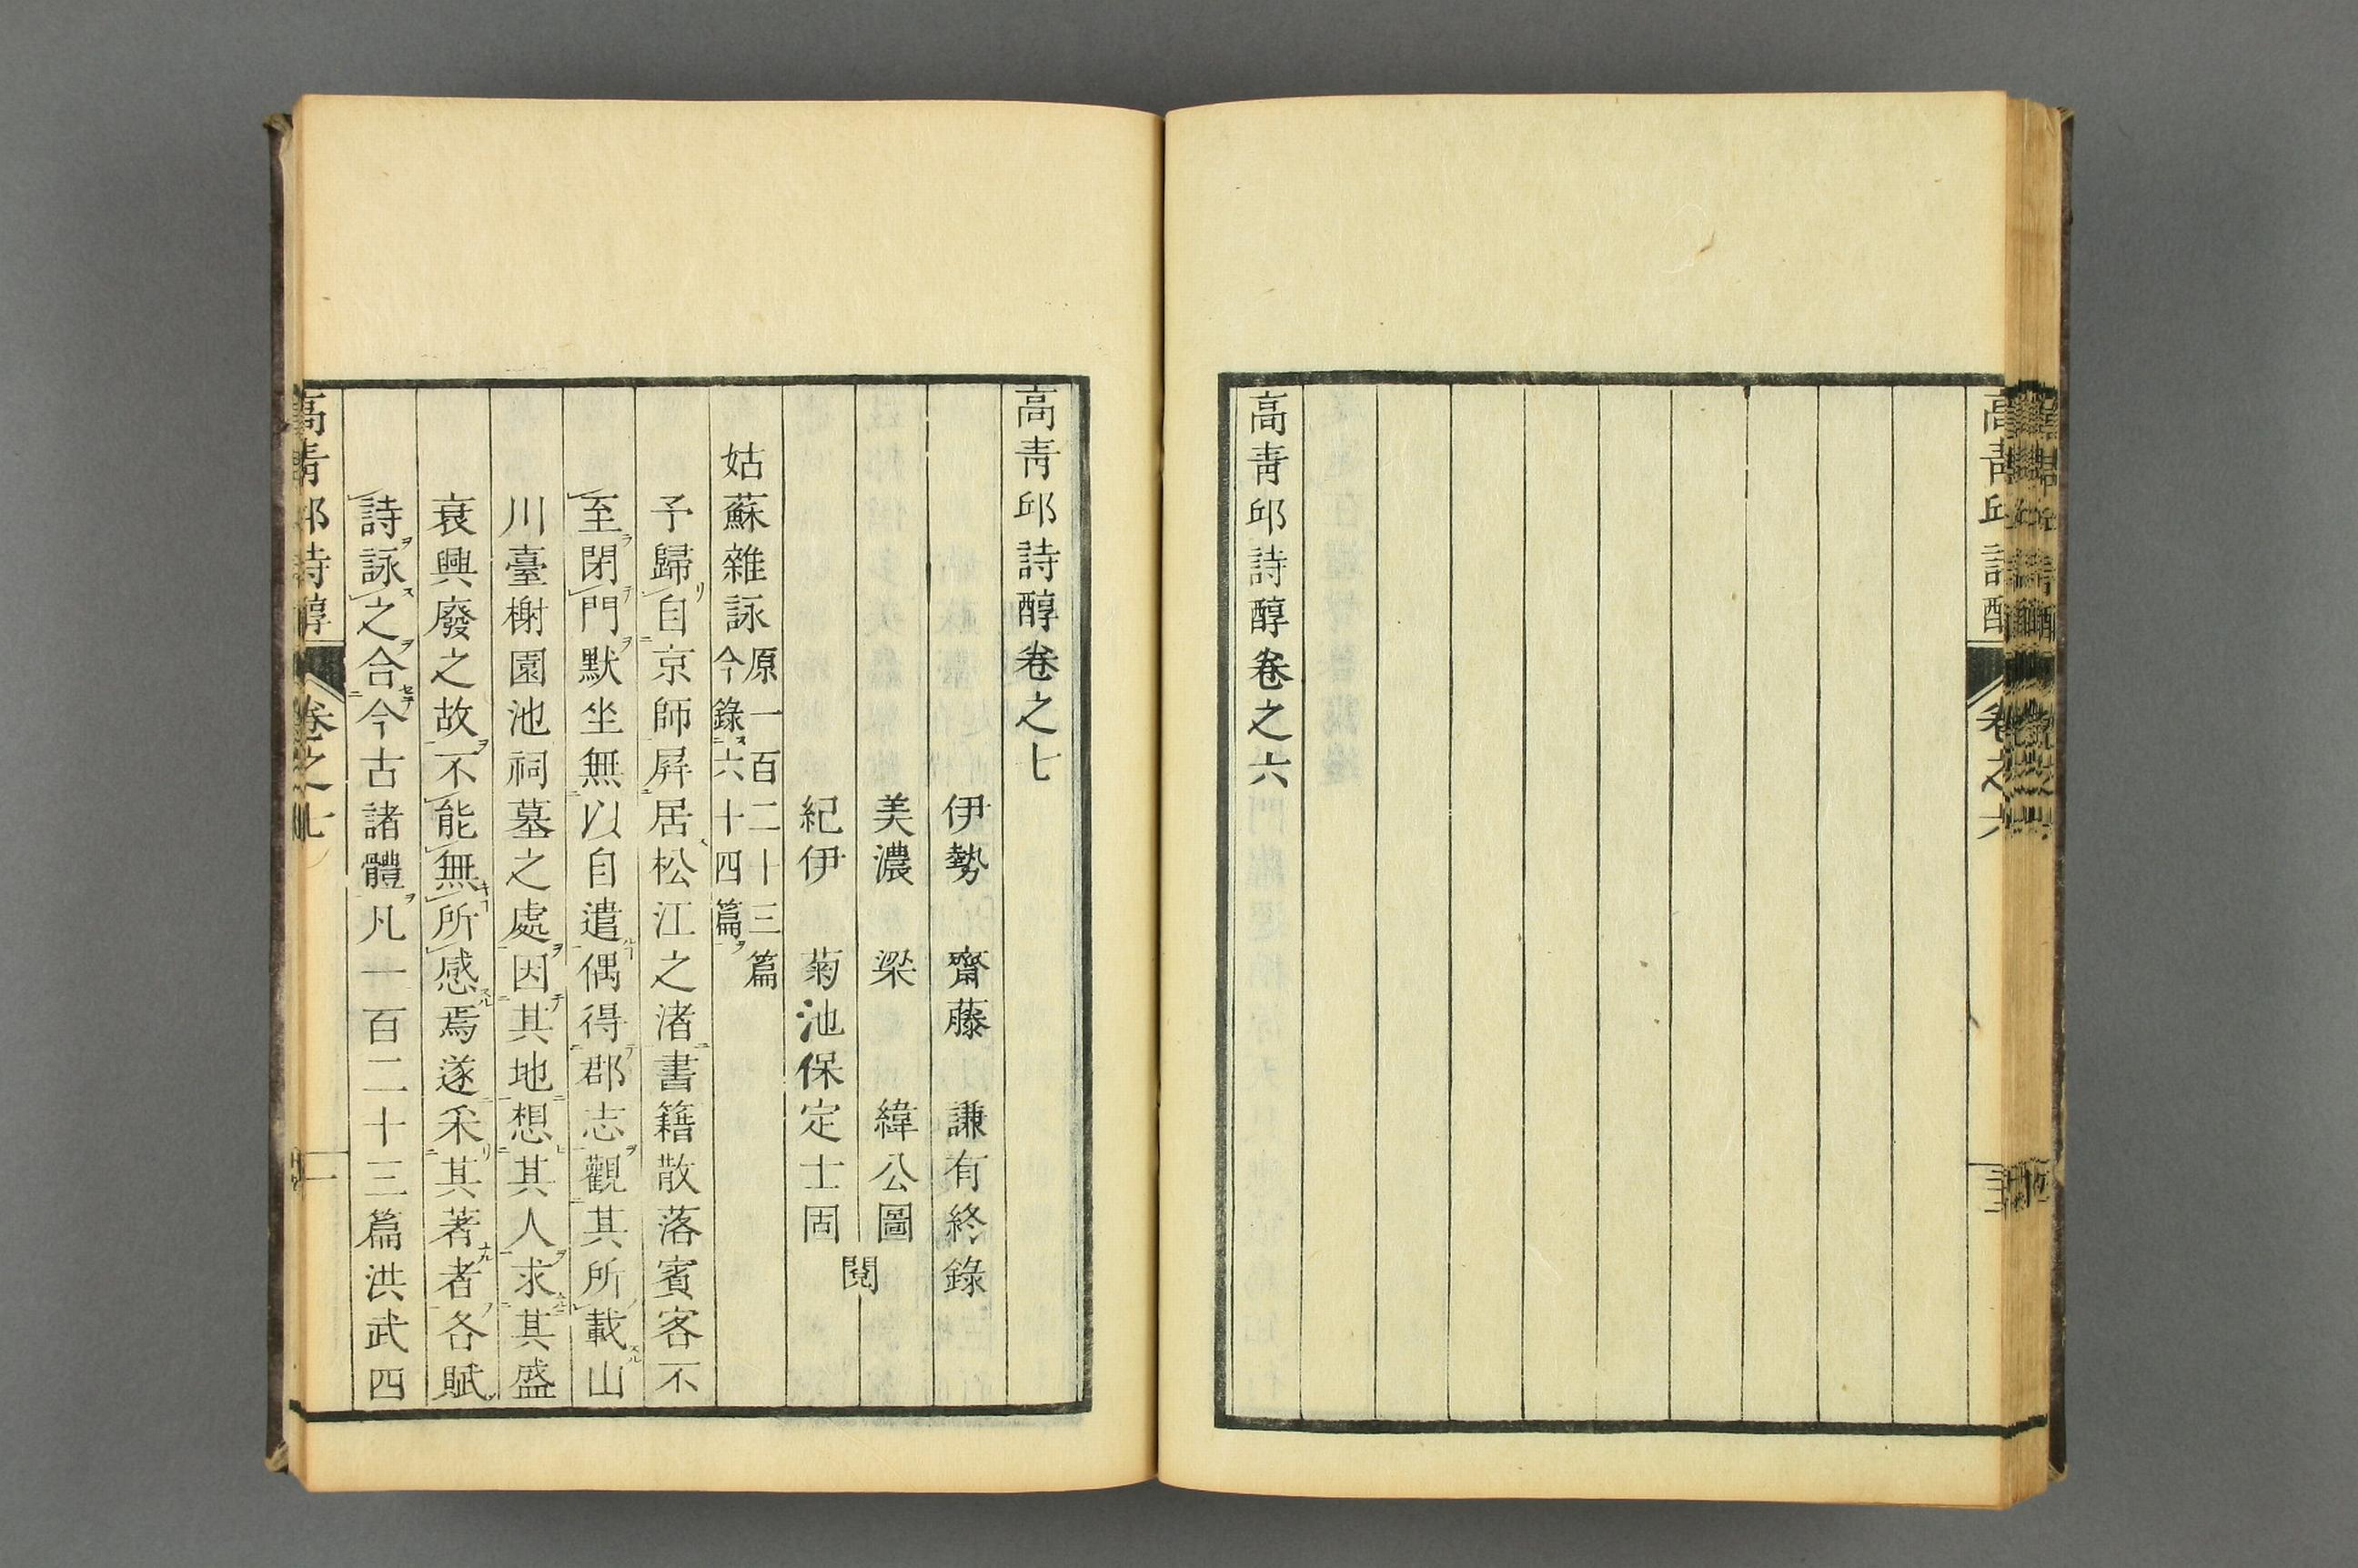 高青邱詩醇卷之六
高青邱詩醇卷之七
伊勢 齋藤 謙有終錄
美濃 梁 緯公圖
紀伊 菊池保定士固
閱
姑蘇雜詠 原一百二十三篇
今錄ス六十四篇ヲ
予歸リ自京師屛居松江之渚書籍散落賓客不
至ラ閉テ門ヲ默坐無以自遣偶得テ郡志ヲ觀其所載スル山
川臺榭園池祠墓之處ヲ因テ其地想ヒ其人ヲ求其盛
衰興廢之故ヲ不能無キヿ所感スル焉遂采リ其著ナル者各賦
詩ヲ詠ス之ヲ合セテ今古諸體ヲ凡一百二十三篇洪武四
高青邱詩醇 卷之七 一